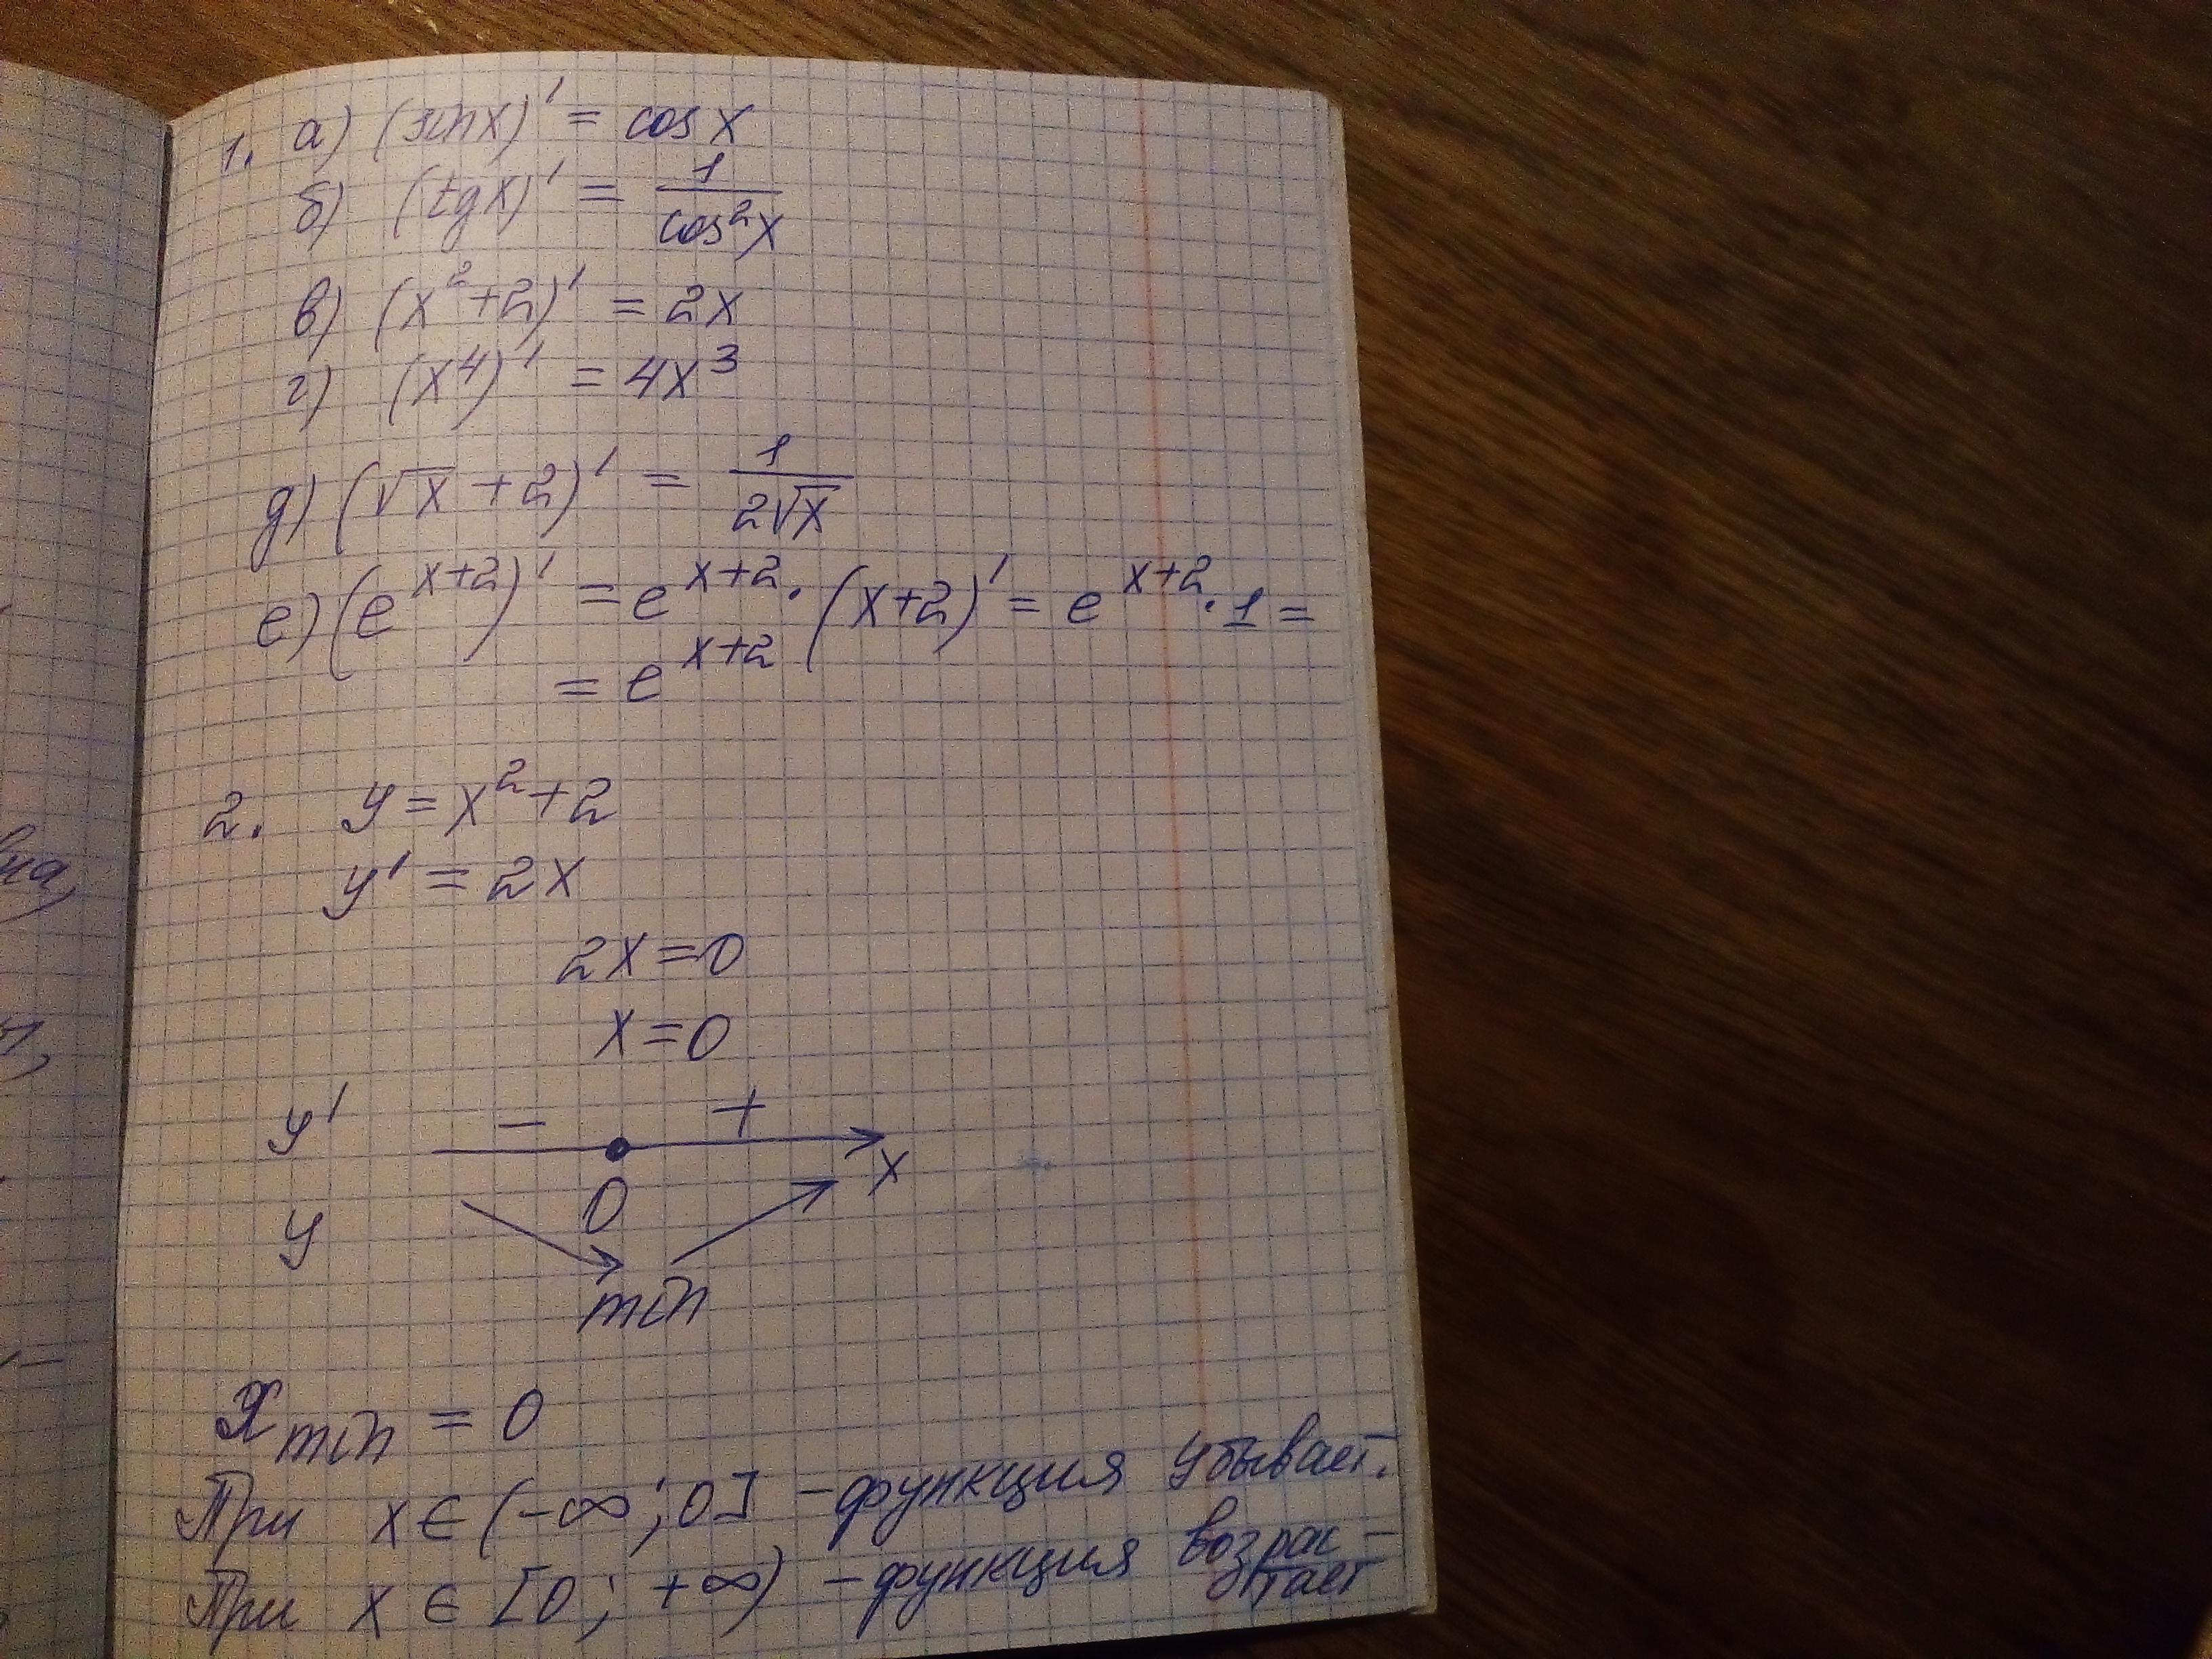 1. а) (sinx)' = cos x
б) (tgx)' = 1/cos²x
в) (x²+2)' = 2x
г) (x⁴)' = 4x³
д) (√x + 2)' = 1/2√x
е) (e^x+2)' = e^x+2 · (x+2)' = e^x+2 · 1 =
= e^x+2
2. y = x²+2
y' = 2x
2x=0
x=0
y' − +
x
y 0
min
x min = 0
При x ∈ (-∞; 0] - функция убывает.
При x ∈ [0; +∞) - функция возрас-
тает